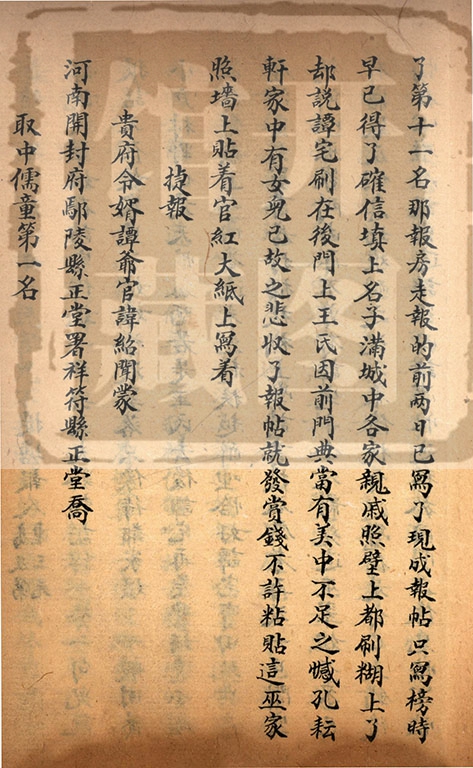 了第十一名那報房走報的前两日已寫了現成報帖只寫榜時
早已得了確信填上名子滿城中各家親戚照壁上都刷糊上了
却説譚宅刷在後門上王氏因前門典當有美中不足之憾孔耘
軒家中有女兒已故之悲収了報帖就發賞錢不許粘貼這巫家
照墻上貼着官紅大紙上寫着
捷報
貴府令婿譚爺官諱紹聞蒙
河南開封府鄢陵縣正堂署祥符縣正堂喬
取中儒童第一名
開圖
館藏